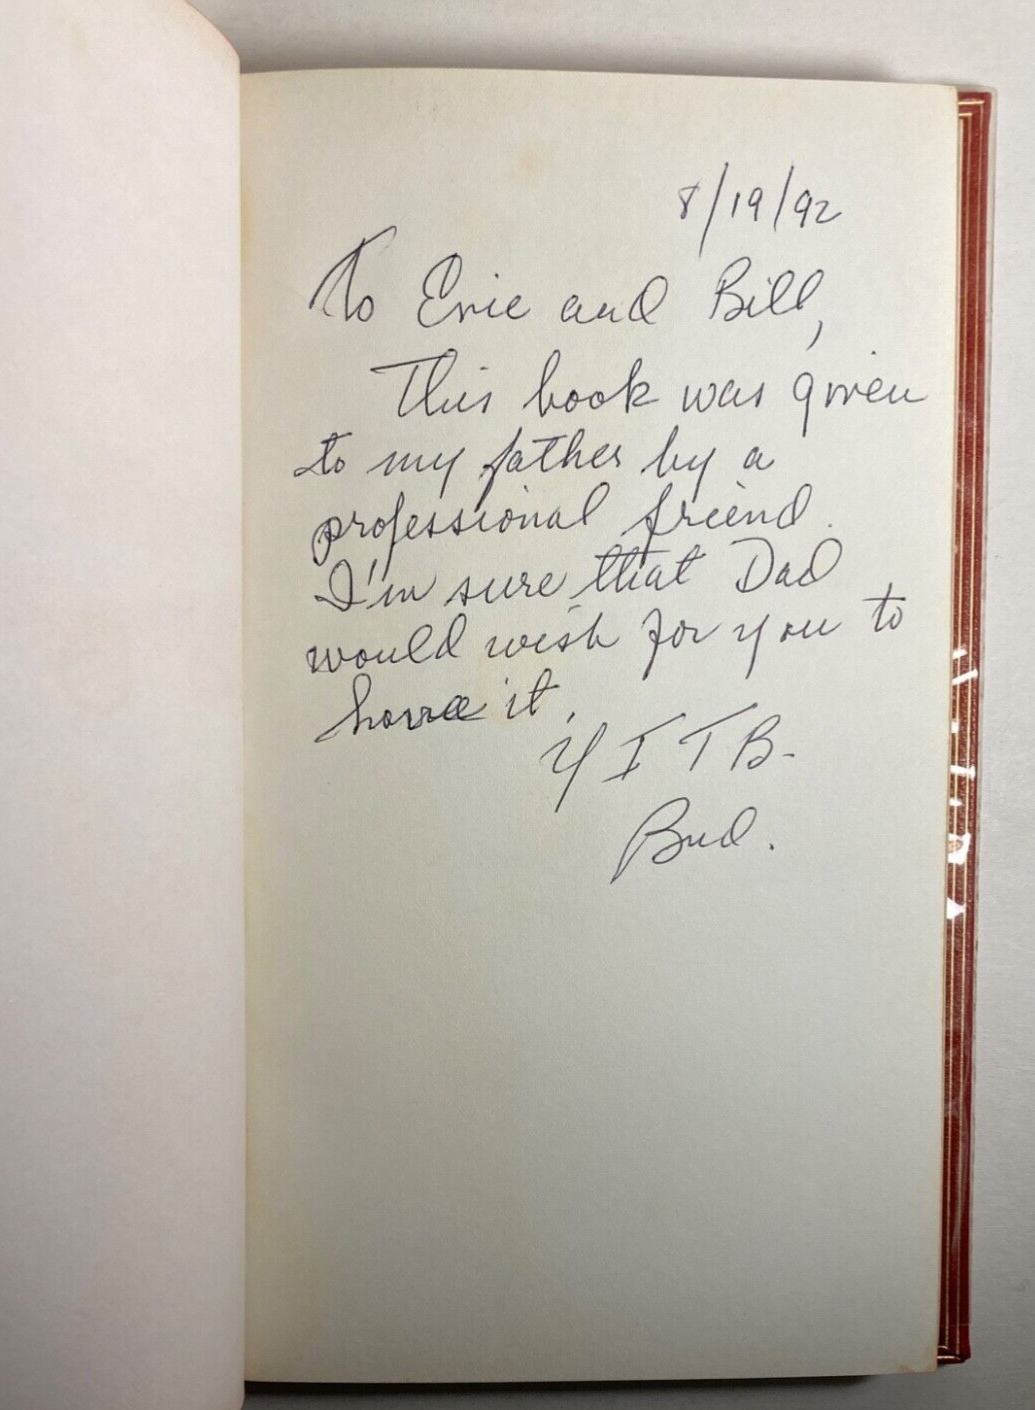 8/19/92
To Evie and Bill,
This book was given
to my father by a
professional friend.
I'm sure that Dad
would wish for you to
have it.
Y I T B-
Bud.